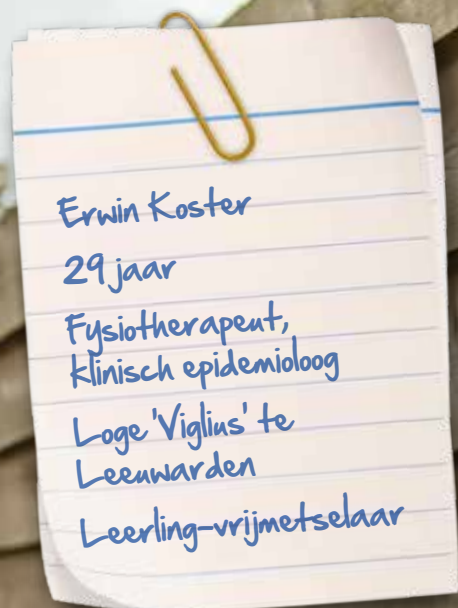 Erwin Koster
29 jaar
Fysiotherapeut,
klinisch epidemioloog
Loge 'Viglius' te
Leeuwarden
Leerling-vrijmetselaar